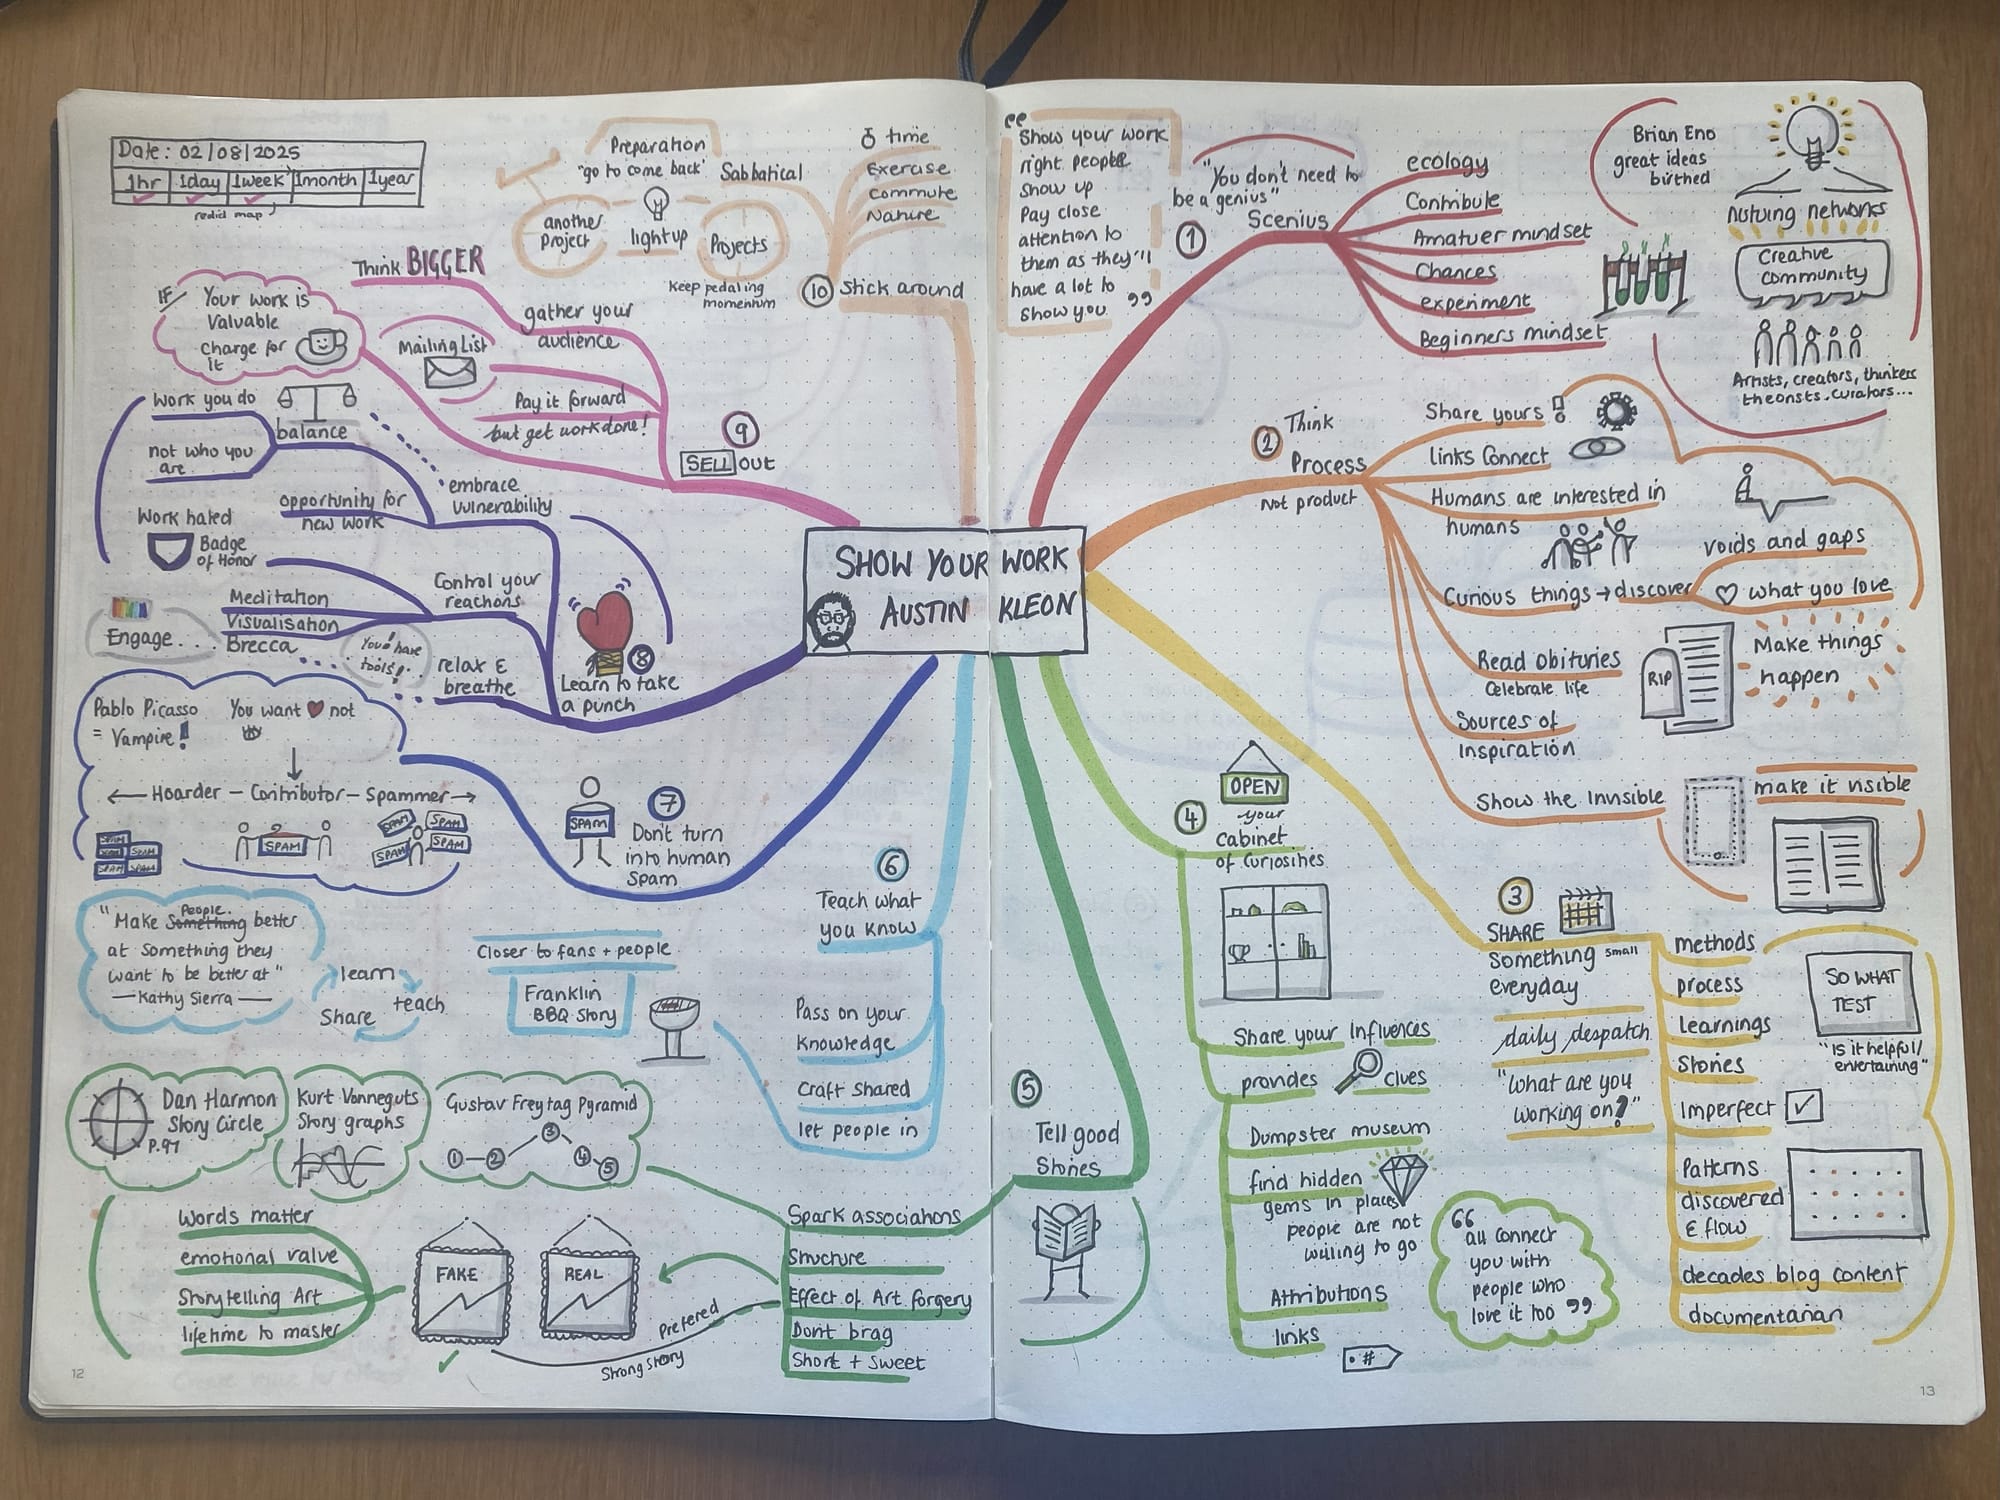 Date: 02/08/2025
1hr 1day 1week 1month 1year
redid map
Preparation
"go to come back'
Sabbatical
another
project
light up
Projects
Keep pedaling
momentum
time
Exercise
Commute
Nature
10 Stick around
Think BIGGER
gather your
audience
Mailing List
Pay it forward
but get work done!
IF Your work is
Valuable
Charge for
it
9
SELL OUT
Work you do
not who you
are
balance
embrace
vulnerability
opportunity for
new work
Work hated
Badge
of Honor
Control your
reactions
Meditation
Visualisation
Brecca
Engage...
You have
tools!
relax &
breathe
8
Learn to take
a punch
SHOW YOUR WORK
AUSTIN KLEON
Pablo Picasso
= Vampire!
You want not
← Hoarder – Contributor – Spammer →
SPAM
SPAM
SPAM
SPAM
SPAM
SPAM
SPAM
SPAM
SPAM
SPAM
SPAM
SPAM
7
Don't turn
into human
Spam
6
Teach what
you know
Pass on your
Knowledge
Craft shared
let people in
Closer to fans + people
Franklin
BBQ Story
"Make Something People. better
at something they
want to be better at"
— Kathy Sierra —
learn
teach
Share
Dan Harmon
Story Circle
P.97
Kurt Vonneguts
Story graphs
Gustav Freytag Pyramid
1 2 3 4 5
Words matter
emotional value
Storytelling Art
lifetime to master
FAKE
REAL
Prefered
Strong story
Spark associations
Structure
Effect of Art forgery
Dont brag
Short + Sweet
5
Tell good
Stories
12
"Show your work
right people
Show up
Pay close
attention to
them as they'll
have a lot to
show you"
1
"You don't need to
be a genius"
Scenius
ecology
Contribute
Amatuer mindset
Chances
experiment
Beginners mindset
Brian Eno
great ideas
birthed
Creative
Community
networks
Artists, creators, thinkers
curators...
2
Think
Process
Not product
Share yours
links Connect
Humans are interested in
humans
Curious things → discover
voids and gaps
what you love
Read obituries
Celebrate life
RIP
Make things
happen
Sources of
inspiration
Show the Invisible
make it visible
3
SHARE
something small
everyday
daily despatch
"What are you
working on?"
methods
process
Learnings
Stories
Imperfect
Patterns
discovered
& flow
decades blog content
documentarian
SO WHAT
TEST
"Is it helpful/
entertaining"
4
OPEN
your
Cabinet
of Curiosities
Share your Influences
provides clues
Dumpster museum
find hidden
gems in places
people are not
willing to go
Attributions
links
#
"all connect
you with
people who
love it too"
13